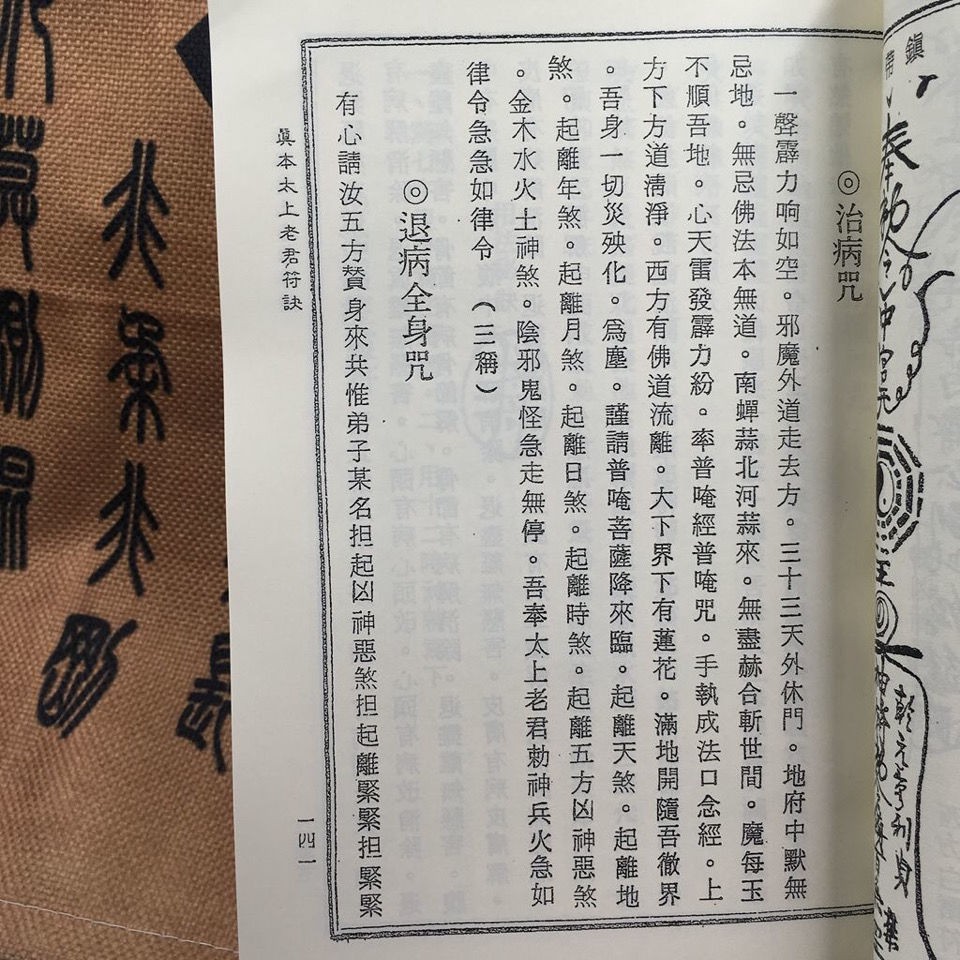 鎮
奉勅令
乾元亨利貞
◎治病咒
一聲霹力响如空。邪魔外道走去方。三十三天外休門。地府中默無
忌地。無忌佛法本無道。南蟬蒜北河蒜來。無盡赫合斬世間。魔每玉
不順吾地。心天雷發霹力紛。奉普唵經普唵咒。手執成法口念經。上
方下方道淸淨。西方有佛道流離。大下界下有蓮花。滿地開隨吾徹界
。吾身一切災殃化。爲塵。謹請普唵菩薩降來臨。起離天煞。起離地
煞。起離年煞。起離月煞。起離日煞。起離時煞。起離五方凶神惡煞
。金木水火土神煞。陰邪鬼怪急走無停。吾奉太上老君勅神兵火急如
律令急急如律令（三稱）
◎退病全身咒
有心請汝五方賛身來共惟弟子某名担起凶神惡煞担起離緊緊担緊緊
眞本太上老君符訣
一四一